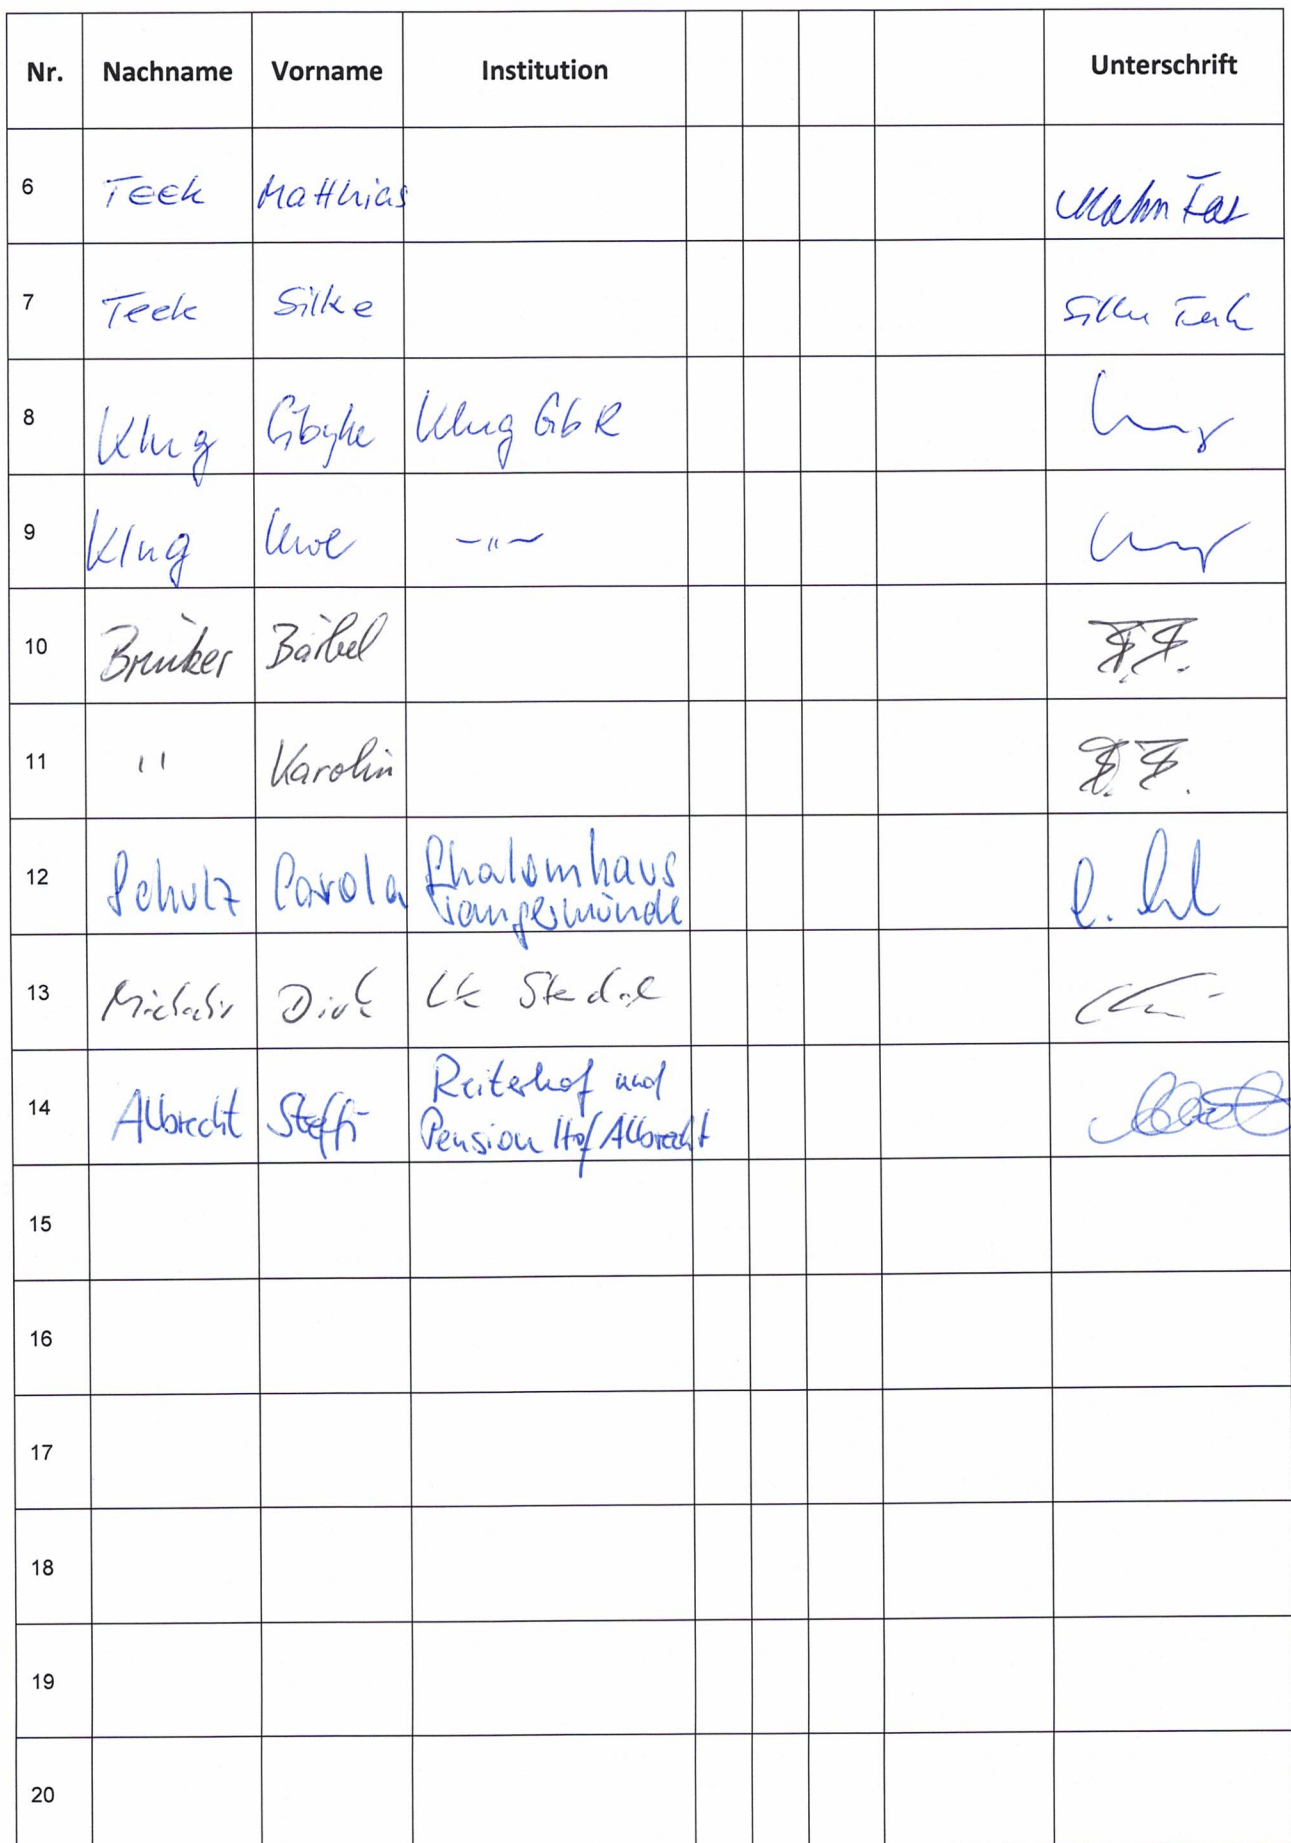 Nr. Nachname Vorname Institution Unterschrift
6 Teek Matthias
7 Teek Silke Silke Teek
8 Klug Klug GbR
9 Klug Uwe -"-
10 Brünker Bärbel
11 " Karolin
12 Schulz Carola Shalomhaus
Tangermünde
13 Dirk LK Stendal
14 Albrecht Steffi Reiterhof und
Pension Hof Albrecht
15
16
17
18
19
20